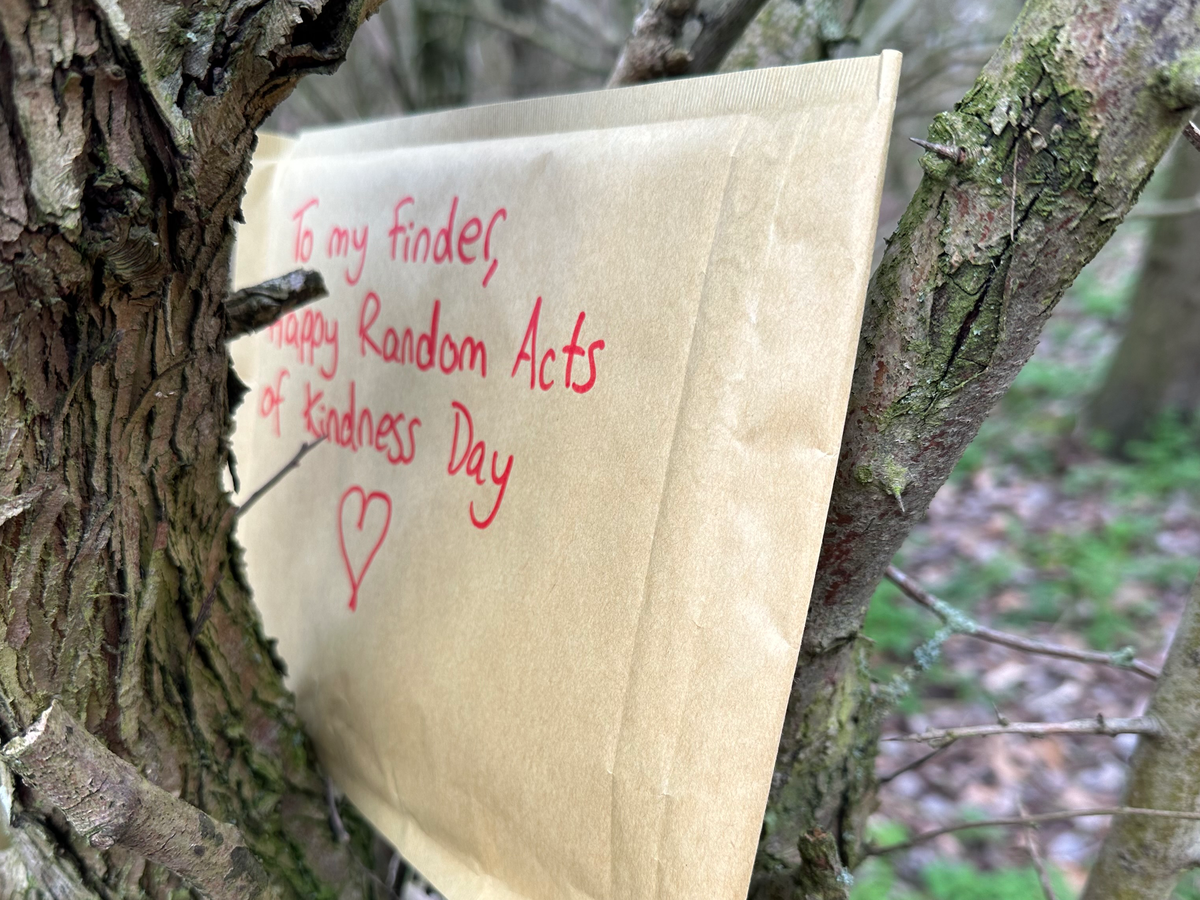 To my finder,
Happy Random Acts
of Kindness Day